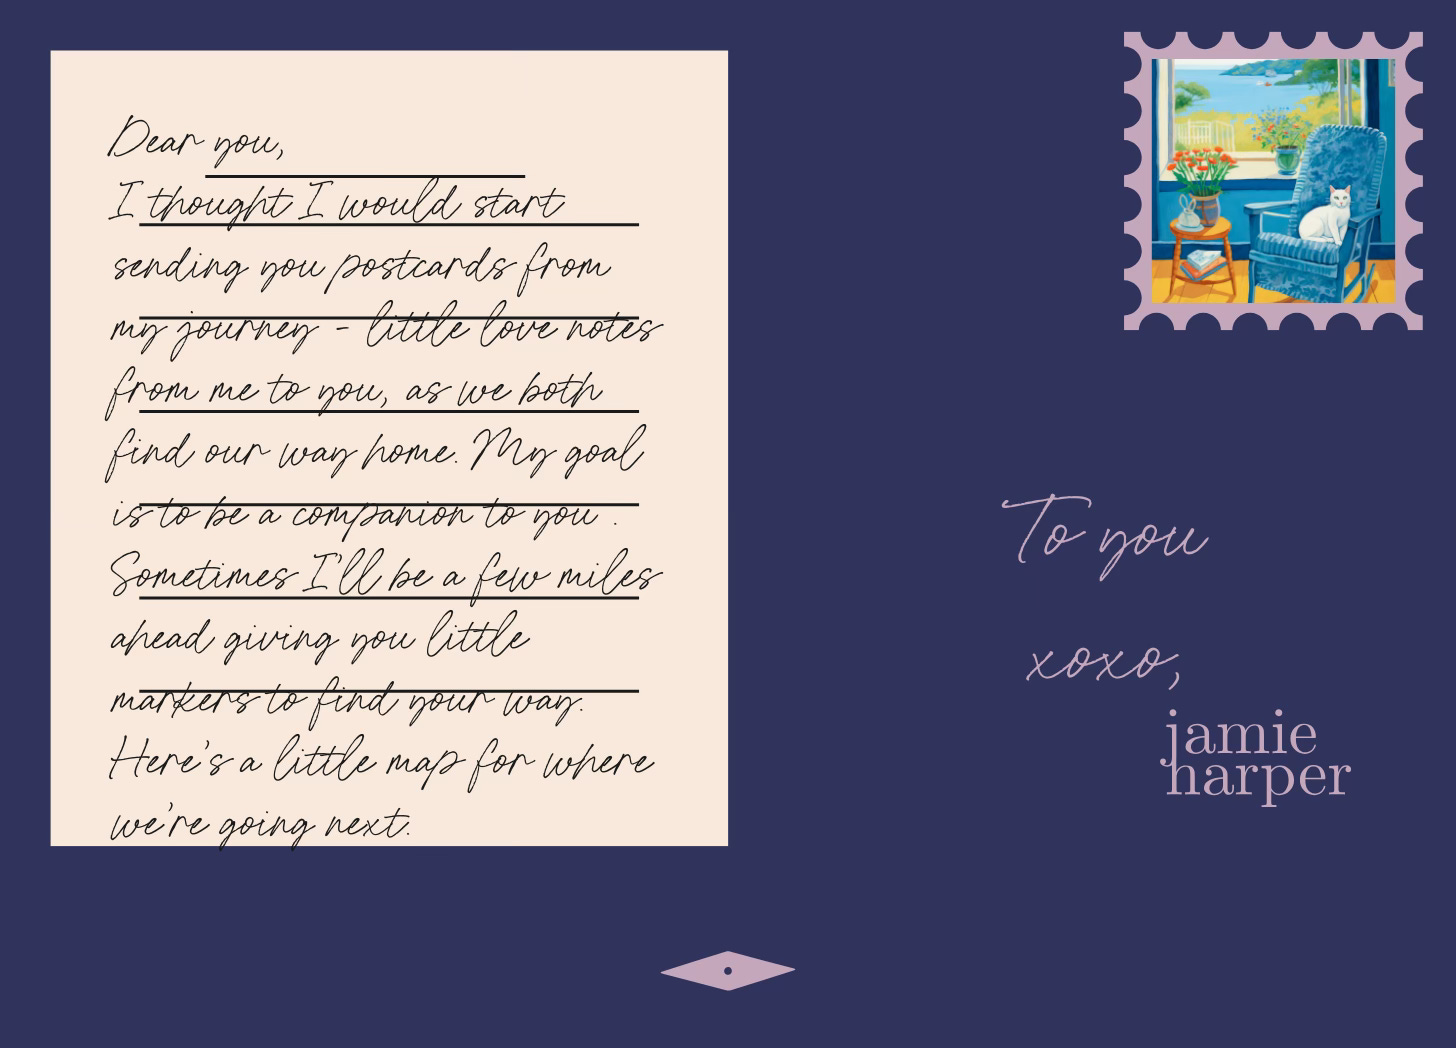 Dear you,
I thought I would start
sending you postcards from
my journey - little love notes
from me to you, as we both
find our way home. My goal
is to be a companion to you .
Sometimes I'll be a few miles
ahead giving you little
markers to find your way.
Here's a little map for where
we're going next.
To you
xoxo,
jamie
harper